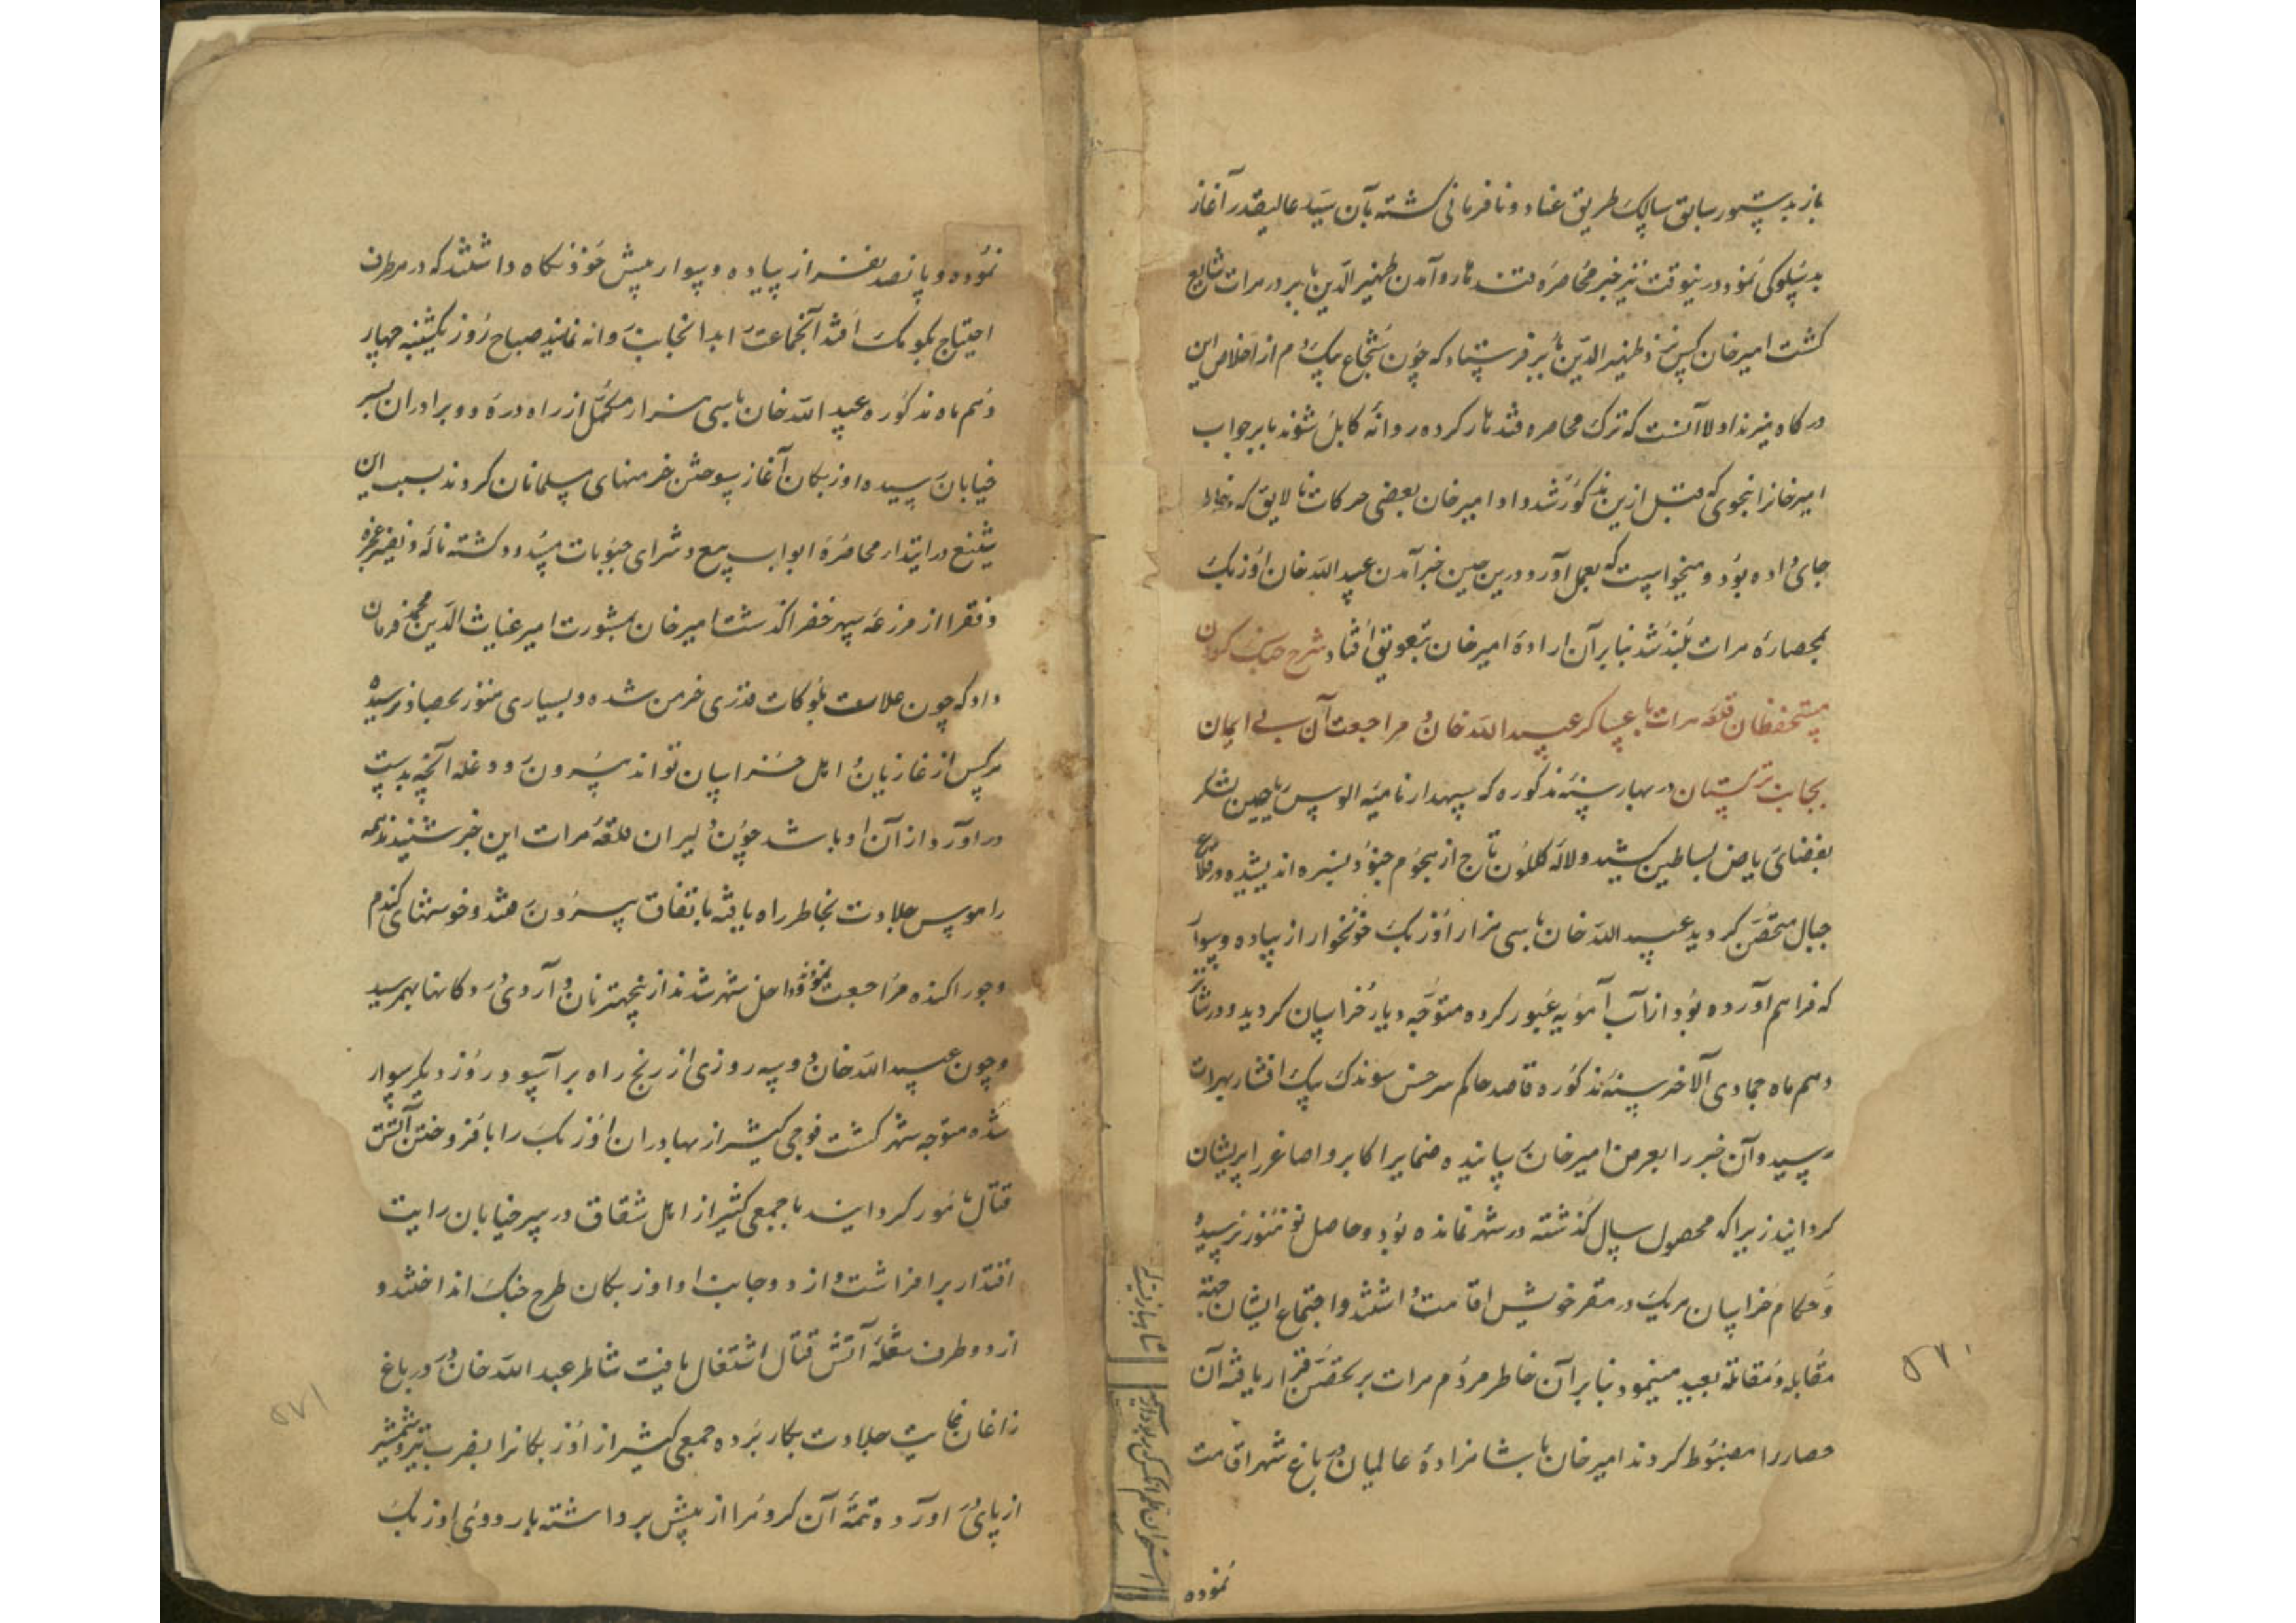 باز بدستور سابق سالک طریق عناد و نافرمانی گشته بآن سید عالیقدر آغاز
بدسلوکی نمود درینوقت نیز خبر محاصره قندهار و آمدن ظهیر الدین بابر در هرات شایع
گشت امیرخان کس نزد ظهیر الدین بابر فرستاد که چون شجاع بیک دم از اخلاص این
درگاه میزند اولا آنست که ترک محاصره قندهار کرده روانهٔ کابل شوند بابر جواب
امیرخانرا بنحوی که قبل ازین مذکور شد داد امیرخان بعضی حرکات نالایق که بخاطر
جای داده بود و میخواست که بعمل آورد درین حین خبر آمدن عبید الله خان اوزبک
بمحاصرهٔ هرات بلند شد بنابر آن ارادهٔ امیرخان بتعویق افتاد شرح جنگ کردن
مستحفظان قلعه هرات با عساکر عبید الله خان و مراجعت آن بی ایمان
بجانب ترکستان در بهار سنه مذکوره که سپهدار نامیه الوس ریاحین لشکر
بفضای ریاض بساطین کشید و لاله گلگون تاج از هجوم جنود سبزه اندیشیده در قلاع
جبال متحصن گردید عبید الله خان با سی هزار اوزبک خونخوار از پیاده و سوار
که فراهم آورده بود از آب آمویه عبور کرده متوجه دیار خراسان گردید و در شانز
دهم ماه جمادی الآخر سنه مذکوره قاصد حاکم سرخس سوندک بیک افشار بهرات
رسید و آن خبر را بعرض امیرخان رسانیده ضمایر اکابر و اصاغر را پریشان
گردانید زیرا که محصول سال گذشته در شهر نمانده بود و حاصل نو هنوز نرسیده
و حکام خراسان هریک در مقر خویش اقامت داشتند و اجتماع ایشان جهة
مقابله و مقاتله بعید مینمود بنابر آن خاطر مردم هرات بر تحصن قرار یافته آن
حصار را مضبوط کردند امیرخان با شاهزادهٔ عالمیان در باغ شهر اقامت
نموده
نموده و پانصد نفر از پیاده و سوار پیش خود نگاه داشتند که در هر طرف
احتیاج بکومک افتد آنجماعت را بدانجانب روانه نمایند صباح روز یکشنبه چهار
دهم ماه مذکوره عبید الله خان با سی هزار مکمل از راه دره دو برادران بسر
خیابان رسیده اوزبکان آغاز سوختن خرمنهای مسلمانان کردند بسبب این
شنیع در ابتدار محاصرهٔ ابواب بیع و شرای حبوبات مسدود گشته ناله و نفیر عجزه
و فقرا از مزرعه سپهر خضرا گذشت امیرخان بمشورت امیر غیاث الدین محمد فرمان
داد که چون غلات بلوکات قدری خرمن شده و بسیاری هنوز بحصاد نرسیده
هرکس از غازیان و اهل خراسان تواند بیرون رود و غله آنچه بدست
در آورد از آن او باشد چون دلیران قلعه هرات این خبر شنیدند همه
را هوس جلادت بخاطر راه یافته باتفاق بیرون رفتند و خوشهای گندم
و جو را کنده مراجعت نموده داخل شهر شدند ازینجهت نان و آرد دی در دکانها بهمرسید
و چون عبید الله خان دو سه روزی از رنج راه بر آسود روز دیگر سوار
شده متوجه شهر گشت فوجی کثیر از بهادران اوزبک را بافروختن آتش
قتال مأمور گردانید با جمعی کثیر از اهل شقاق در سر خیابان رایت
اقتدار برافراشت و از دو جانب او اوزبکان طرح جنگ انداختند و
از دو طرف شعله آتش قتال اشتعال یافت شاطر عبد الله خان در باغ
زاغان غایت جلادت بکار برده جمعی کثیر از اوزبکانرا بضرب تیر و شمشیر
از پای در آورده تتمهٔ آن گروه را از پیش برداشته باردوی اوزبک